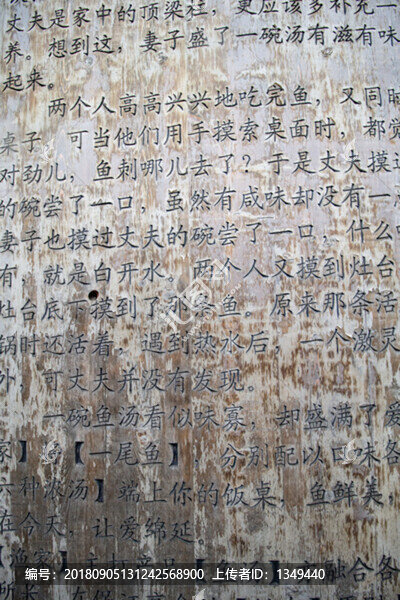 丈夫是家中的顶梁柱，更应该多补充一
养。想到这，妻子盛了一碗汤有滋有味
起来。
两个人高高兴兴地吃完鱼，又同时
桌子，可当他们用手摸索桌面时，都觉
对劲儿，鱼刺哪儿去了？于是丈夫摸过
的碗尝了一口，虽然有咸味却没有一点
妻子也摸过丈夫的碗尝了一口，什么味
有，就是白开水。两个人又摸到灶台
灶台底下摸到了那条鱼。原来那条活
锅时还活着，遇到热水后，一个激灵
外，可丈夫并没有发现。
一碗鱼汤看似味寡，却盛满了爱
家】【一尾鱼】 分别配以口味各
六种浓汤】端上你的饭桌，鱼鲜美，
在今天，让爱绵延。
【渔家】
融合各
编号：20180905131242568900 上传者ID：1349440